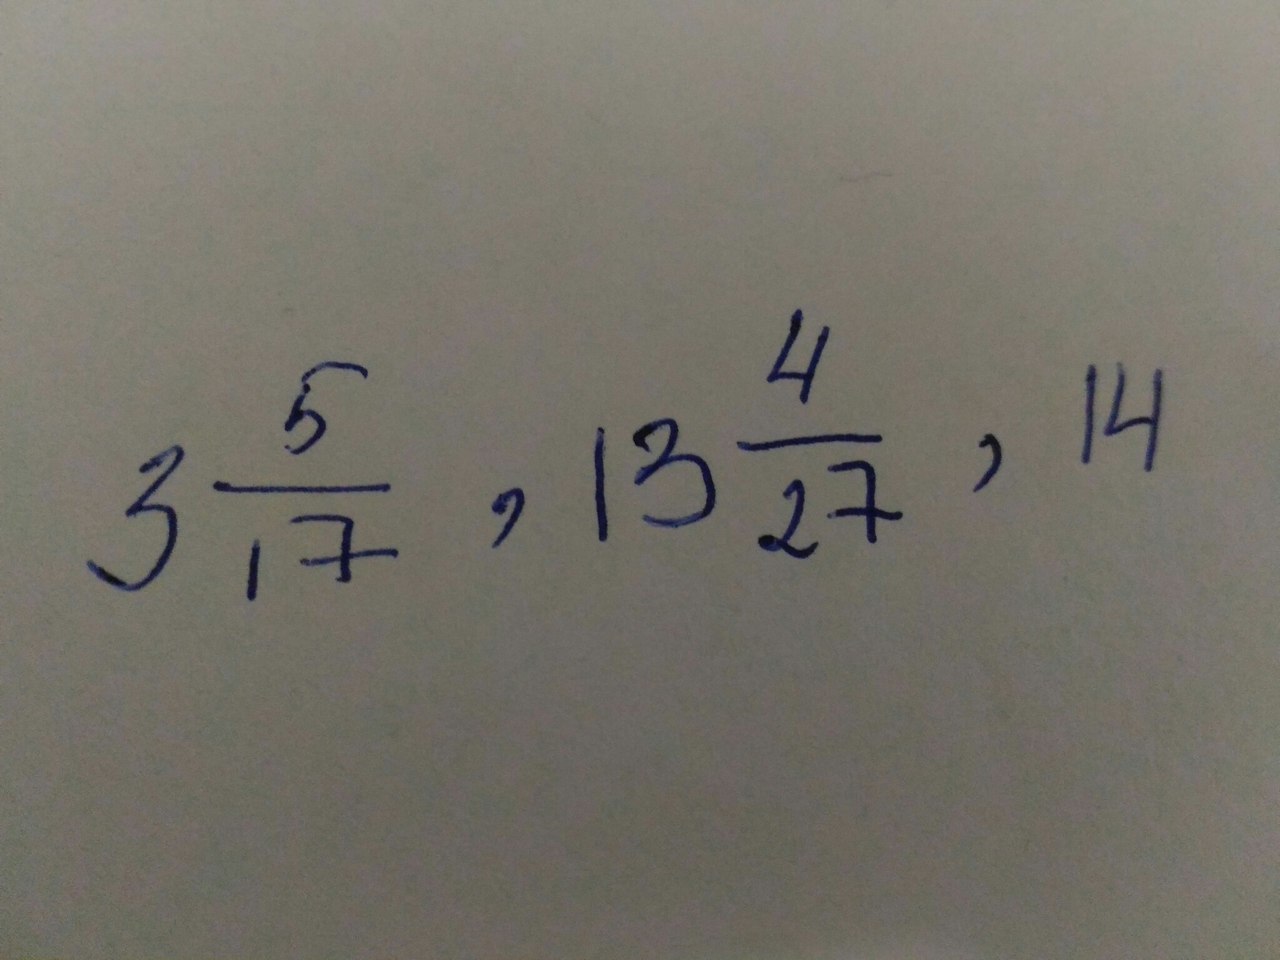 3 5/17 , 13 4/27 , 14